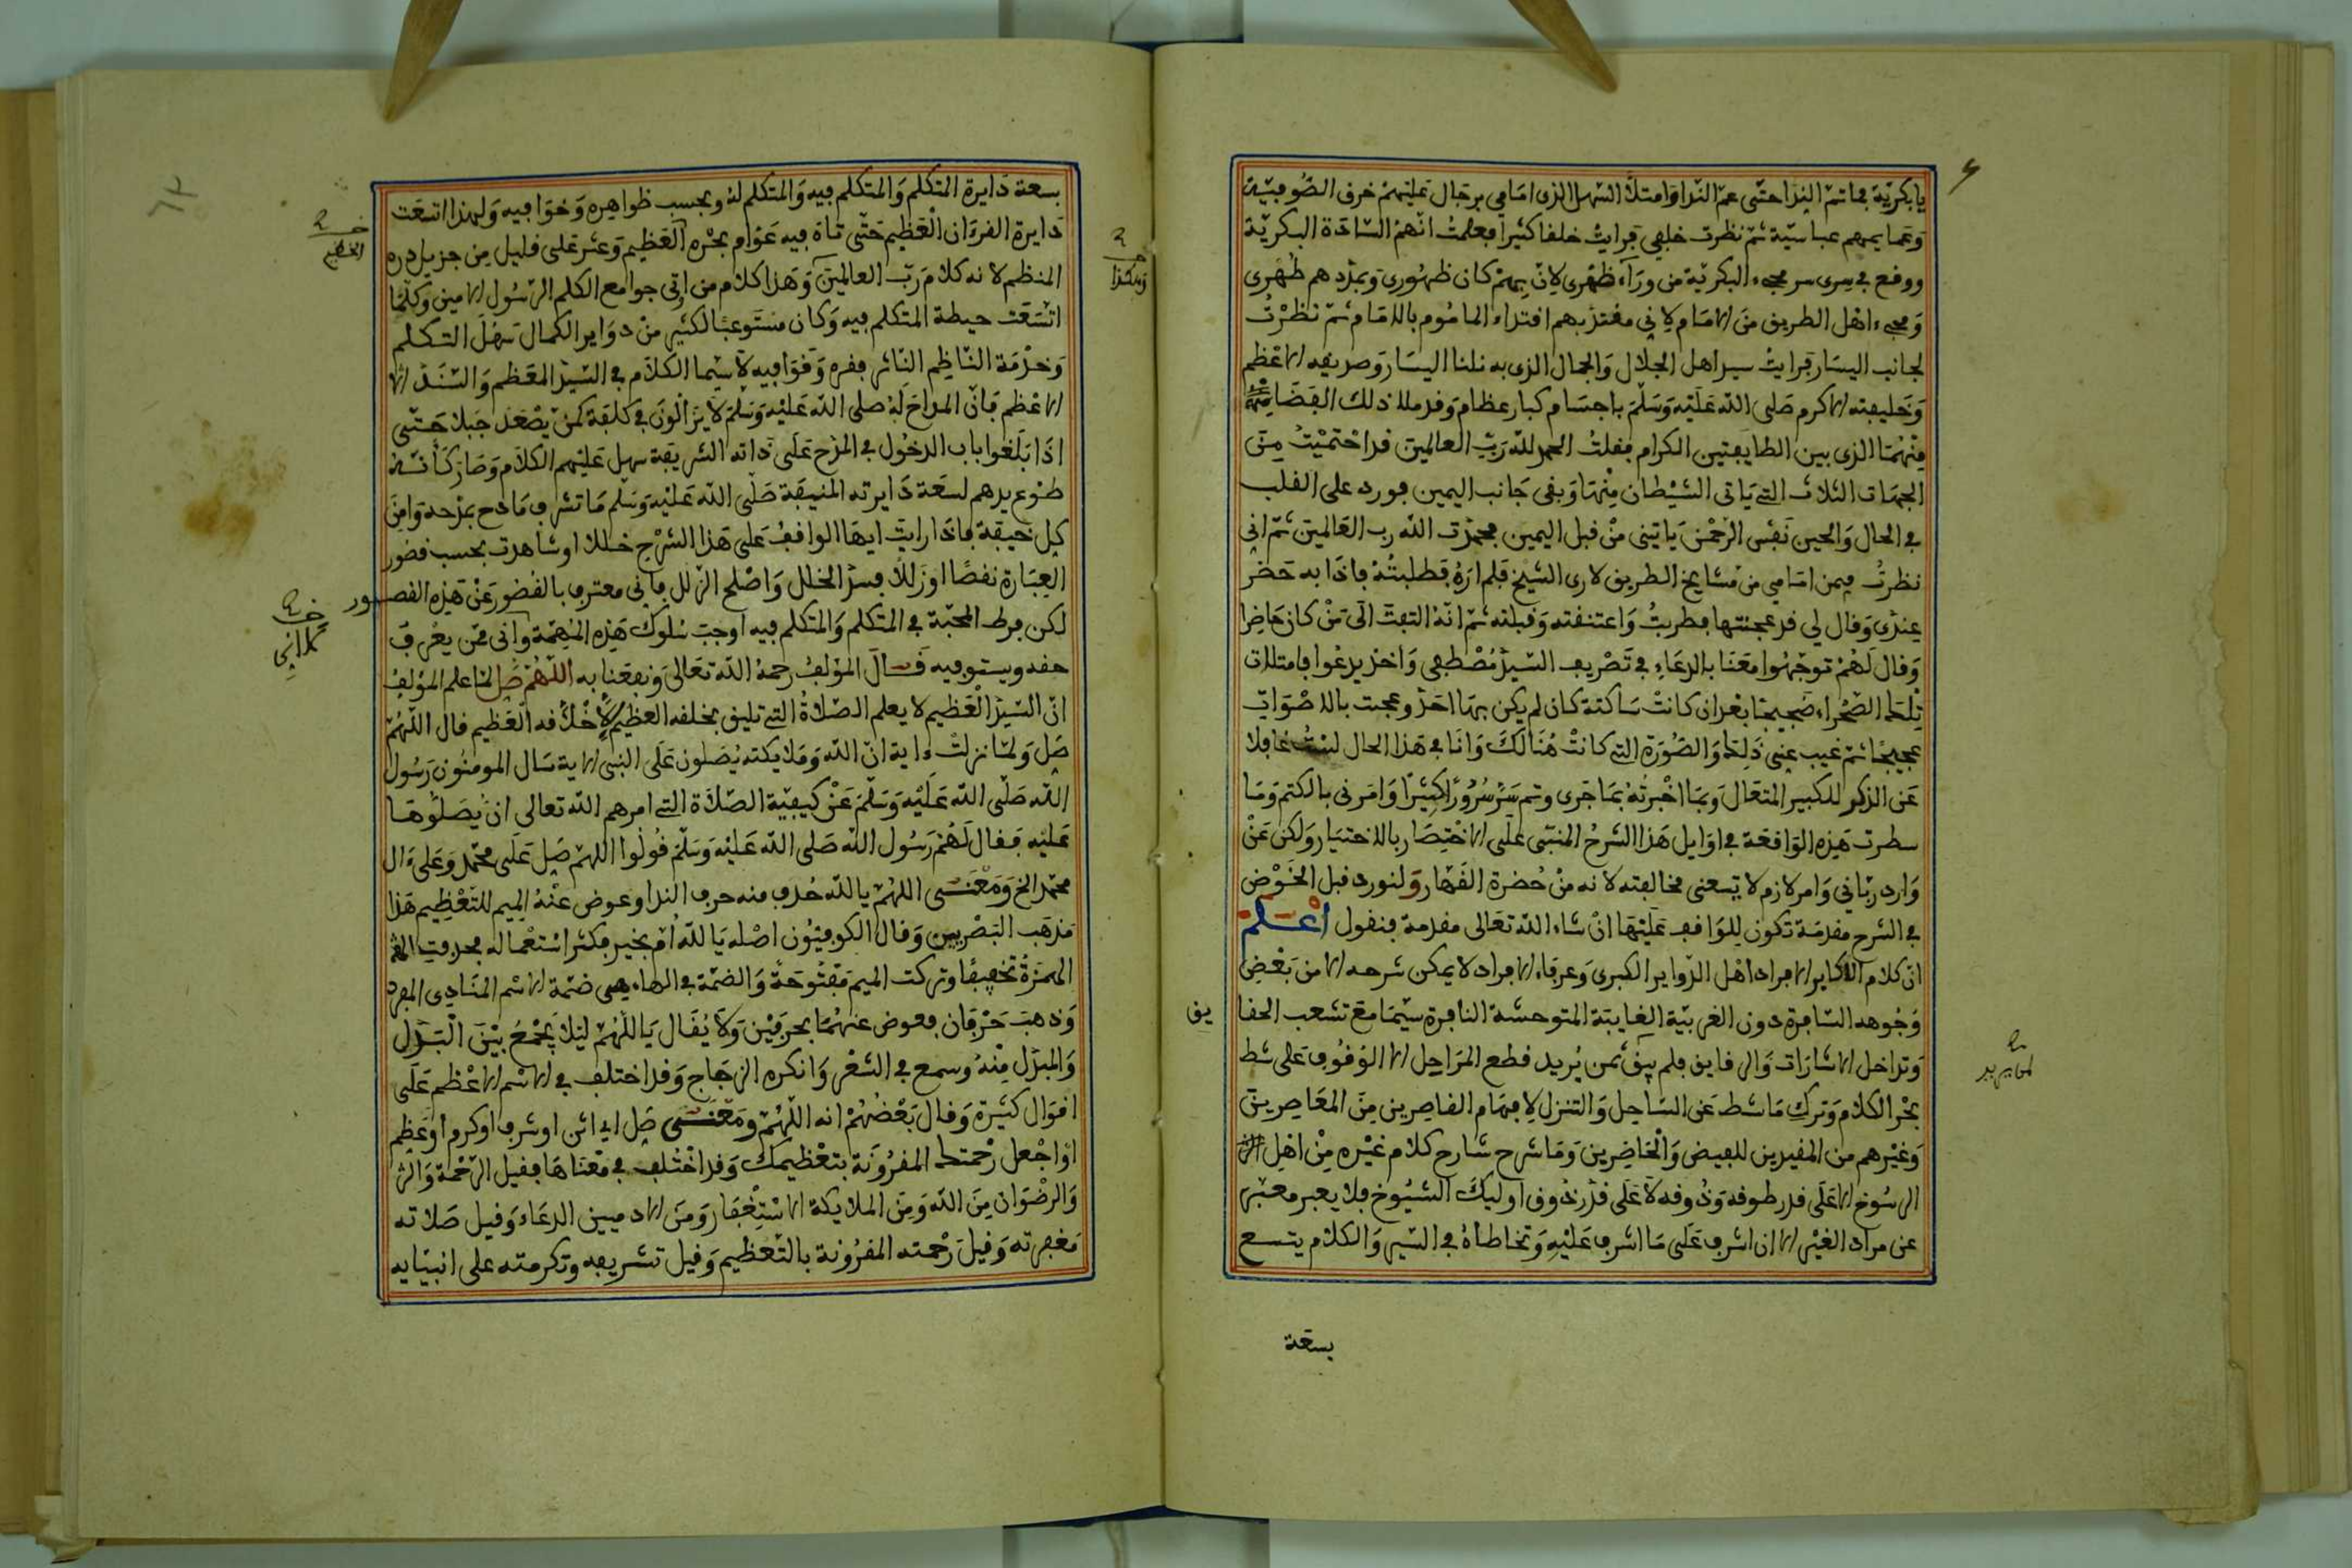 يا بكريّة فما تمّ الندا حتّى عمّ الندا وامتلأ السهل الذى امامي برجال عليهم خرق الصّوفيّة
وعمايمهم عباسيّة ثمّ نظرت خلفي فرايتُ خلفا كثيرا فعلمتُ انّهم السّادة البكريّة
ووقع في سرى سر مجىء البكريّة من ورآء ظهرى لانّ بهم كان ظهورى وبمددهم ظهرى
ومجىء اهل الطريق من الامام لاني مقتد بهم اقتداء الماموم بالامام ثمّ نظرْتُ
لجانب اليسار فرايتُ سيراهل الجلال والجمال الذى به نلنا اليسار وصريفه الاعظم
وخليفته الاكرم صلى اللّه عليْه وسلّم باجسام كبار عظام وقد ملا ذلك الفضا
منهما الذى بين الطايفتين الكرام فقلتُ الحمد للّه ربّ العالمين قد احتميْتُ من
الجهات الثلاث التے ياتى الشيْطان منها وبقى جانب اليمين فورد على القلب
في الحال والحين نَفَس الرحْمٰن ياتينى منْ قبل اليمين فحمدت اللّه رب العالمين ثمّ انى
نظرتُ فيمن امامى من مشايخ الطريق لارى الشيخ فلم ارهُ فطلبتُهُ فاذا به حضر
عندى وقال لي قد عجنتها فطربتُ واعتنقته وقبلته ثمّ انّهُ التفت الى مَنْ كان حاضرا
وقال لهُمْ توجّهُوا معَنا بالدعاءِ في تصْريف السّيدْ مُصْطفى واخذ يدعُوا فامتلات
تِلك الصّحْراء ضجيجا بعْدان كانتْ ساكتة كان لم يكن بها احَدْ وعجت بالاصْوات
عجيجًا ثمّ غيب عنى ذلك والصّورة التے كانتْ هُنالك وانا في هَذا الحال لستُ غافلا
عَن الذكر للكبير المتعال وبما اخْبرتُهُ بما جَرى وتم سَرّ سُرُورًا كبيرًا وامرنى بالكتم وما
سطرت هَذِه الواقعة في اوايل هَذا الشرحُ المبنى علَى الاخْتِصار بالاختيار ولكن عَنْ
وارد ربّاني وامر لازم لا يسعنى مخالفته لانه منْ حُضرة القهّار ولنورد قبل الخَوْض
في الشرح مقدمة تكون لِلواقف عليْها انْ شاء اللّه تعالى مقدمة فنقول اعْـلم
انّ كلام الاكابر الافراد اهْل الدّواير الكبرى وعرفاء الافراد لا يمكن شرحه الا من بَعْض
وجُوهه السّافرة دون الغريبّة الغايبَة المتوحشة النافرة سيّما مع تشعب الحقا
يق
وتداخل الاشارات والرقايق فلم يبق لمن يُريد قطع المرَاحل الا الوُقوُف على شط
بحْر الكلام وترك ما شط عَن السّاحل والتنزل لافهام القاصرين مِن المعَاصرين
وغيْرهم من المفيدين للفيض والْحاضرين وما شرح شارح كلام غيْره مِنْ اهْل
الرسُوخ الا على قدر طوقه وذُوقه لا على قدْر ذوق اوليك الشيُوخ فلا يعبر معبّر
عن مراد الغيْر الا ان اشرف على ما اشرف عليْه وتخاطاهُ في السّير والكلام يتسع
بسعة
بسعة دايرة المتكلم والمتكلم فيه والمتكلم لهُ وبحسب ظواهره وخوافيه ولهذا اتسعت
دايرة القرءان الْعظيم حتّى تاه فيه عَوام بحْره العظيم وعثر على قليل مِن جزيل دره
المنظم لانه كلام ربّ العالمين وهَذا كلام من اوتى جوامع الكلم الرّسُول الامين وكلّما
اتّسَعَت حيطة المتكلم فيه وكان مستوعبا لكثير منْ دواير الكمال سَهُلَ التكلم
وخدْمة النّاظم النّاثر بفره وفوافيه لا سيّما الكلام في السّيدْ المعَظم والسّنَدْ الا
الاعْظم فانّ المداحَ لهُ صلى اللّه عليْه وسَلّمَ لا يزالُونَ في كلفة كمنْ يصْعَد جَبلا حتّى
اذا بلَغوا باب الدخُول في المدْح علَى ذاته الشريفة سهل عليْهم الكلام وصَار كأنّه
طوْع يدهم لسعة دايرته المنيفة صلّى اللّه عليْه وسَلّم ما تشرف مادح بمدْحه وامِن
كل خيفة فاذا رايت ايها الواقف على هَذا الشرْح خللا او شاهدت بحسب قصُور
العِبارة نقصًا او زللا فسدّ الخلل واصْلح الزّلل فانى معترف بالقصُور عَنْ هَذه القصـور
لكن فرط المحبّة في المتكلم والمتكلم فيه اوجبَ سُلوك هَذِه المُهِمّة وانى ممّن يعْرف
حقه ويستوفيه قـالَ المؤلفُ رحمهُ اللّه تعَالى ونفعَنا به اللّهُمّ صَل لمّا علم المؤلف
انّ السّيدْ الْعظيم لا يعلم الصّلاةُ التے تليق بخلقه العظيم الاّ خلاّقه الْعَظيم قال اللّهُمّ
صَل ولمّا نزلتْ ءاية انّ اللّه وملايكته يُصَلون على النبى الاية سَال المومنُون رسُول
اللّه صَلّى اللّه عليْه وسَلّم عَنْ كيفيّة الصّلاة التے امرهم اللّه تعالى انْ يُصَلُوهَا
عليْه فقال لهُمْ رسُول اللّه صلى اللّه عليْه وسَلّمَ قُولوا اللهمّ صَل على محمّد وعلى ءال
محمّد الخ ومعْنـى اللهُمّ يا للّه حُذف منه حرف الندا وعوض عنْهُ الميم للتعْظيم هَذا
مذهب البصْريين وقال الكوفيّون اصْله يا للّه اُمّ بخير فكثر اسْتعْماله فحذفت
الهمْزةُ تخفيفًا وتركت الميم مفتُوحةً والضمّة في الهاء هى ضمّة الاسْم المنادى المفرد
وذهبَ حَرْفان فعوض عنهُمَا بحرفيْن ولا يُقَال يا اللّهُمّ ليلا يجْمعُ بيْن الْبَدَل
والمبدل مِنْهُ وسمع في الشعْر وانكره الزجَاج وقد اختلف في الاسْم الاعْظم علَى
اقوال كثيرة وقال بَعْضُهُمْ انه اللّهُمّ ومعْنـى صَل اى ائن او شرف او كرم او عَظم
اوْ اجْعل رحْمتك المقرُونة بتعْظيمك وقد اخْتُلف في مَعْناها فقيل الرّحْمة
والرضْوان مِنَ اللّه ومِنَ الملايكة الاسْتِغْفار ومَن الادميين الدعَاء وقيل صَلاته
مغفرته وقيل رحْمته المقرُونة بالتّعظيم وقيل تشريفه وتكرمته على انبيَايه